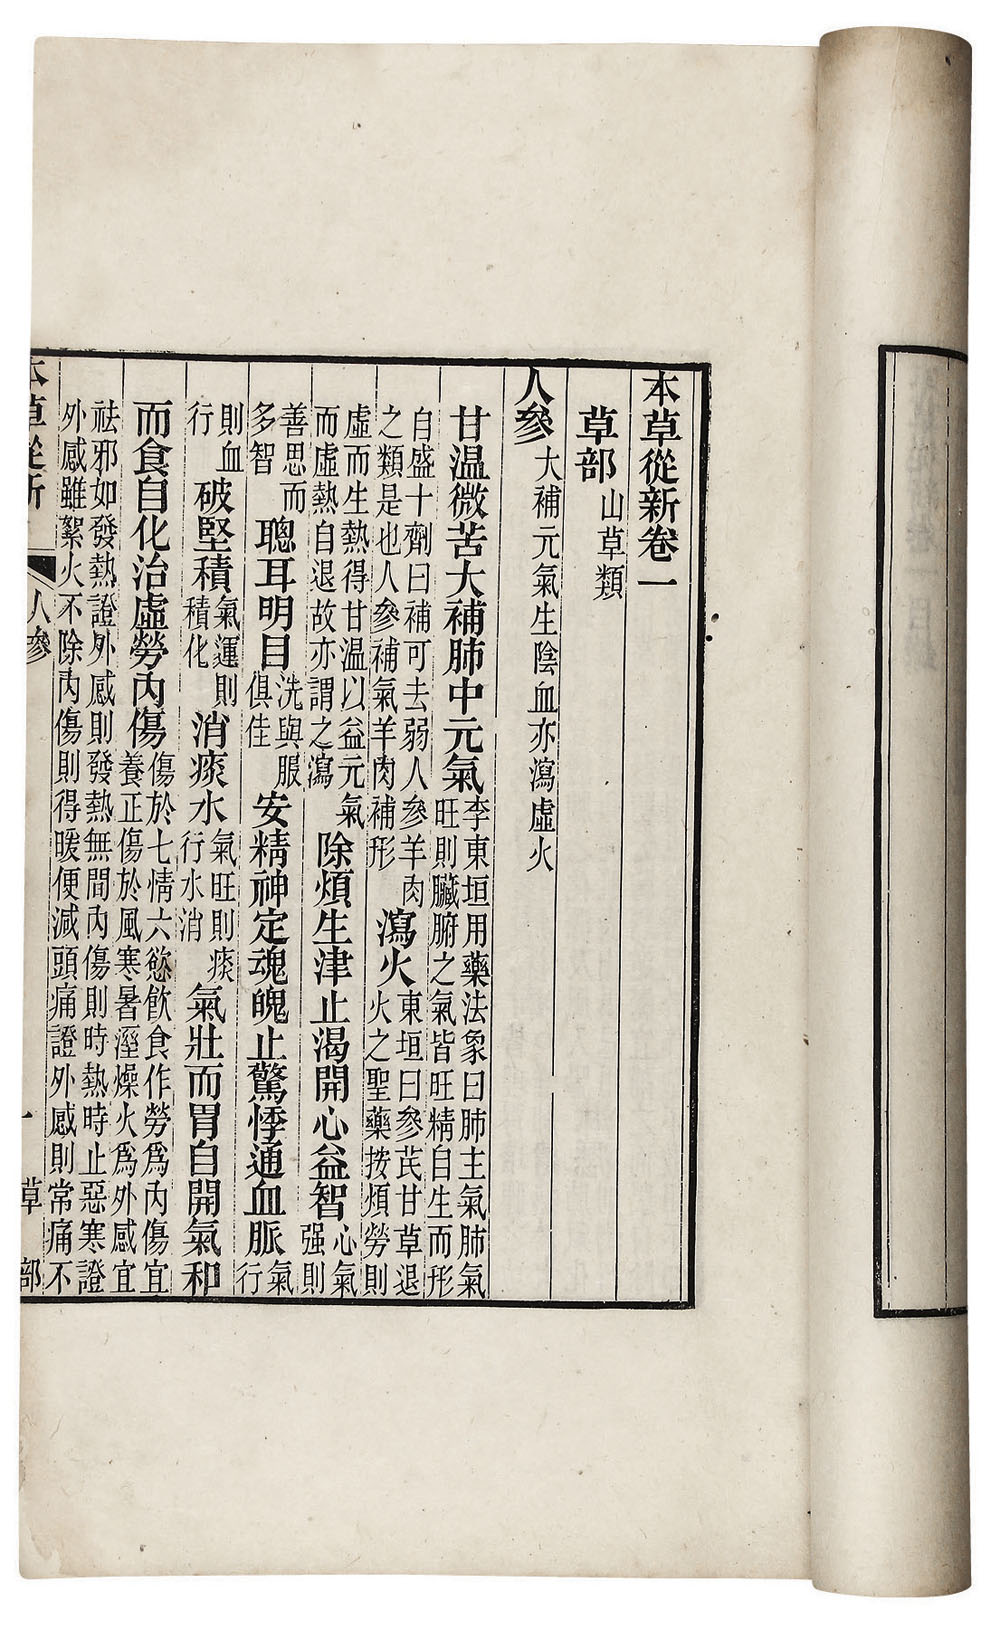 本草從新卷一
草部 山草類
人參 大補元氣生陰血亦瀉虛火
甘温微苦大補肺中元氣 李東垣用藥法象曰肺主氣肺氣旺則臟腑之氣皆旺精自生而形
自盛十劑曰補可去弱人參羊肉之類是也人參補氣羊肉補形 瀉火 東垣曰參芪甘草退火之聖藥按煩勞則
虛而生熱得甘温以益元氣而虛熱自退故亦謂之瀉 除煩生津止渴開心益智 心氣强則
善思而多智 聰耳明目 洗與服俱佳 安精神定魂魄止驚悸通血脈 氣行
則血行 破堅積 氣運則積化 消痰水 氣旺則痰行水消 氣壯而胃自開氣和
而食自化治虛勞內傷 傷於七情六慾飲食作勞爲內傷宜養正傷於風寒暑溼燥火爲外感宜
祛邪如發熱證外感則發熱無間內傷則時熱時止惡寒證外感雖絮火不除內傷則得暖便減頭痛證外感則常痛不
本草從新 人參 一 草部